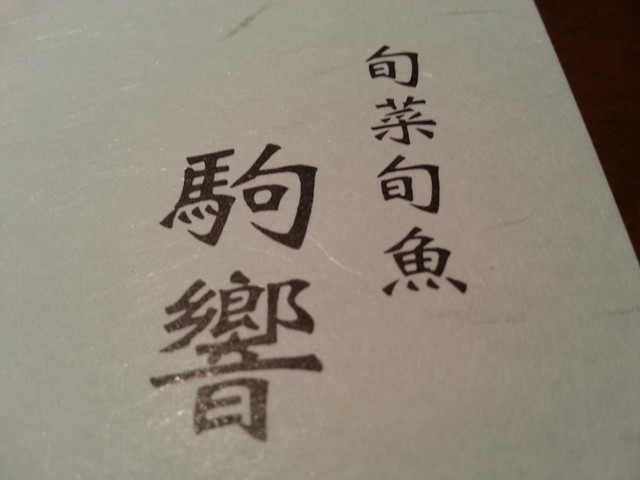 旬菜旬魚
駒響